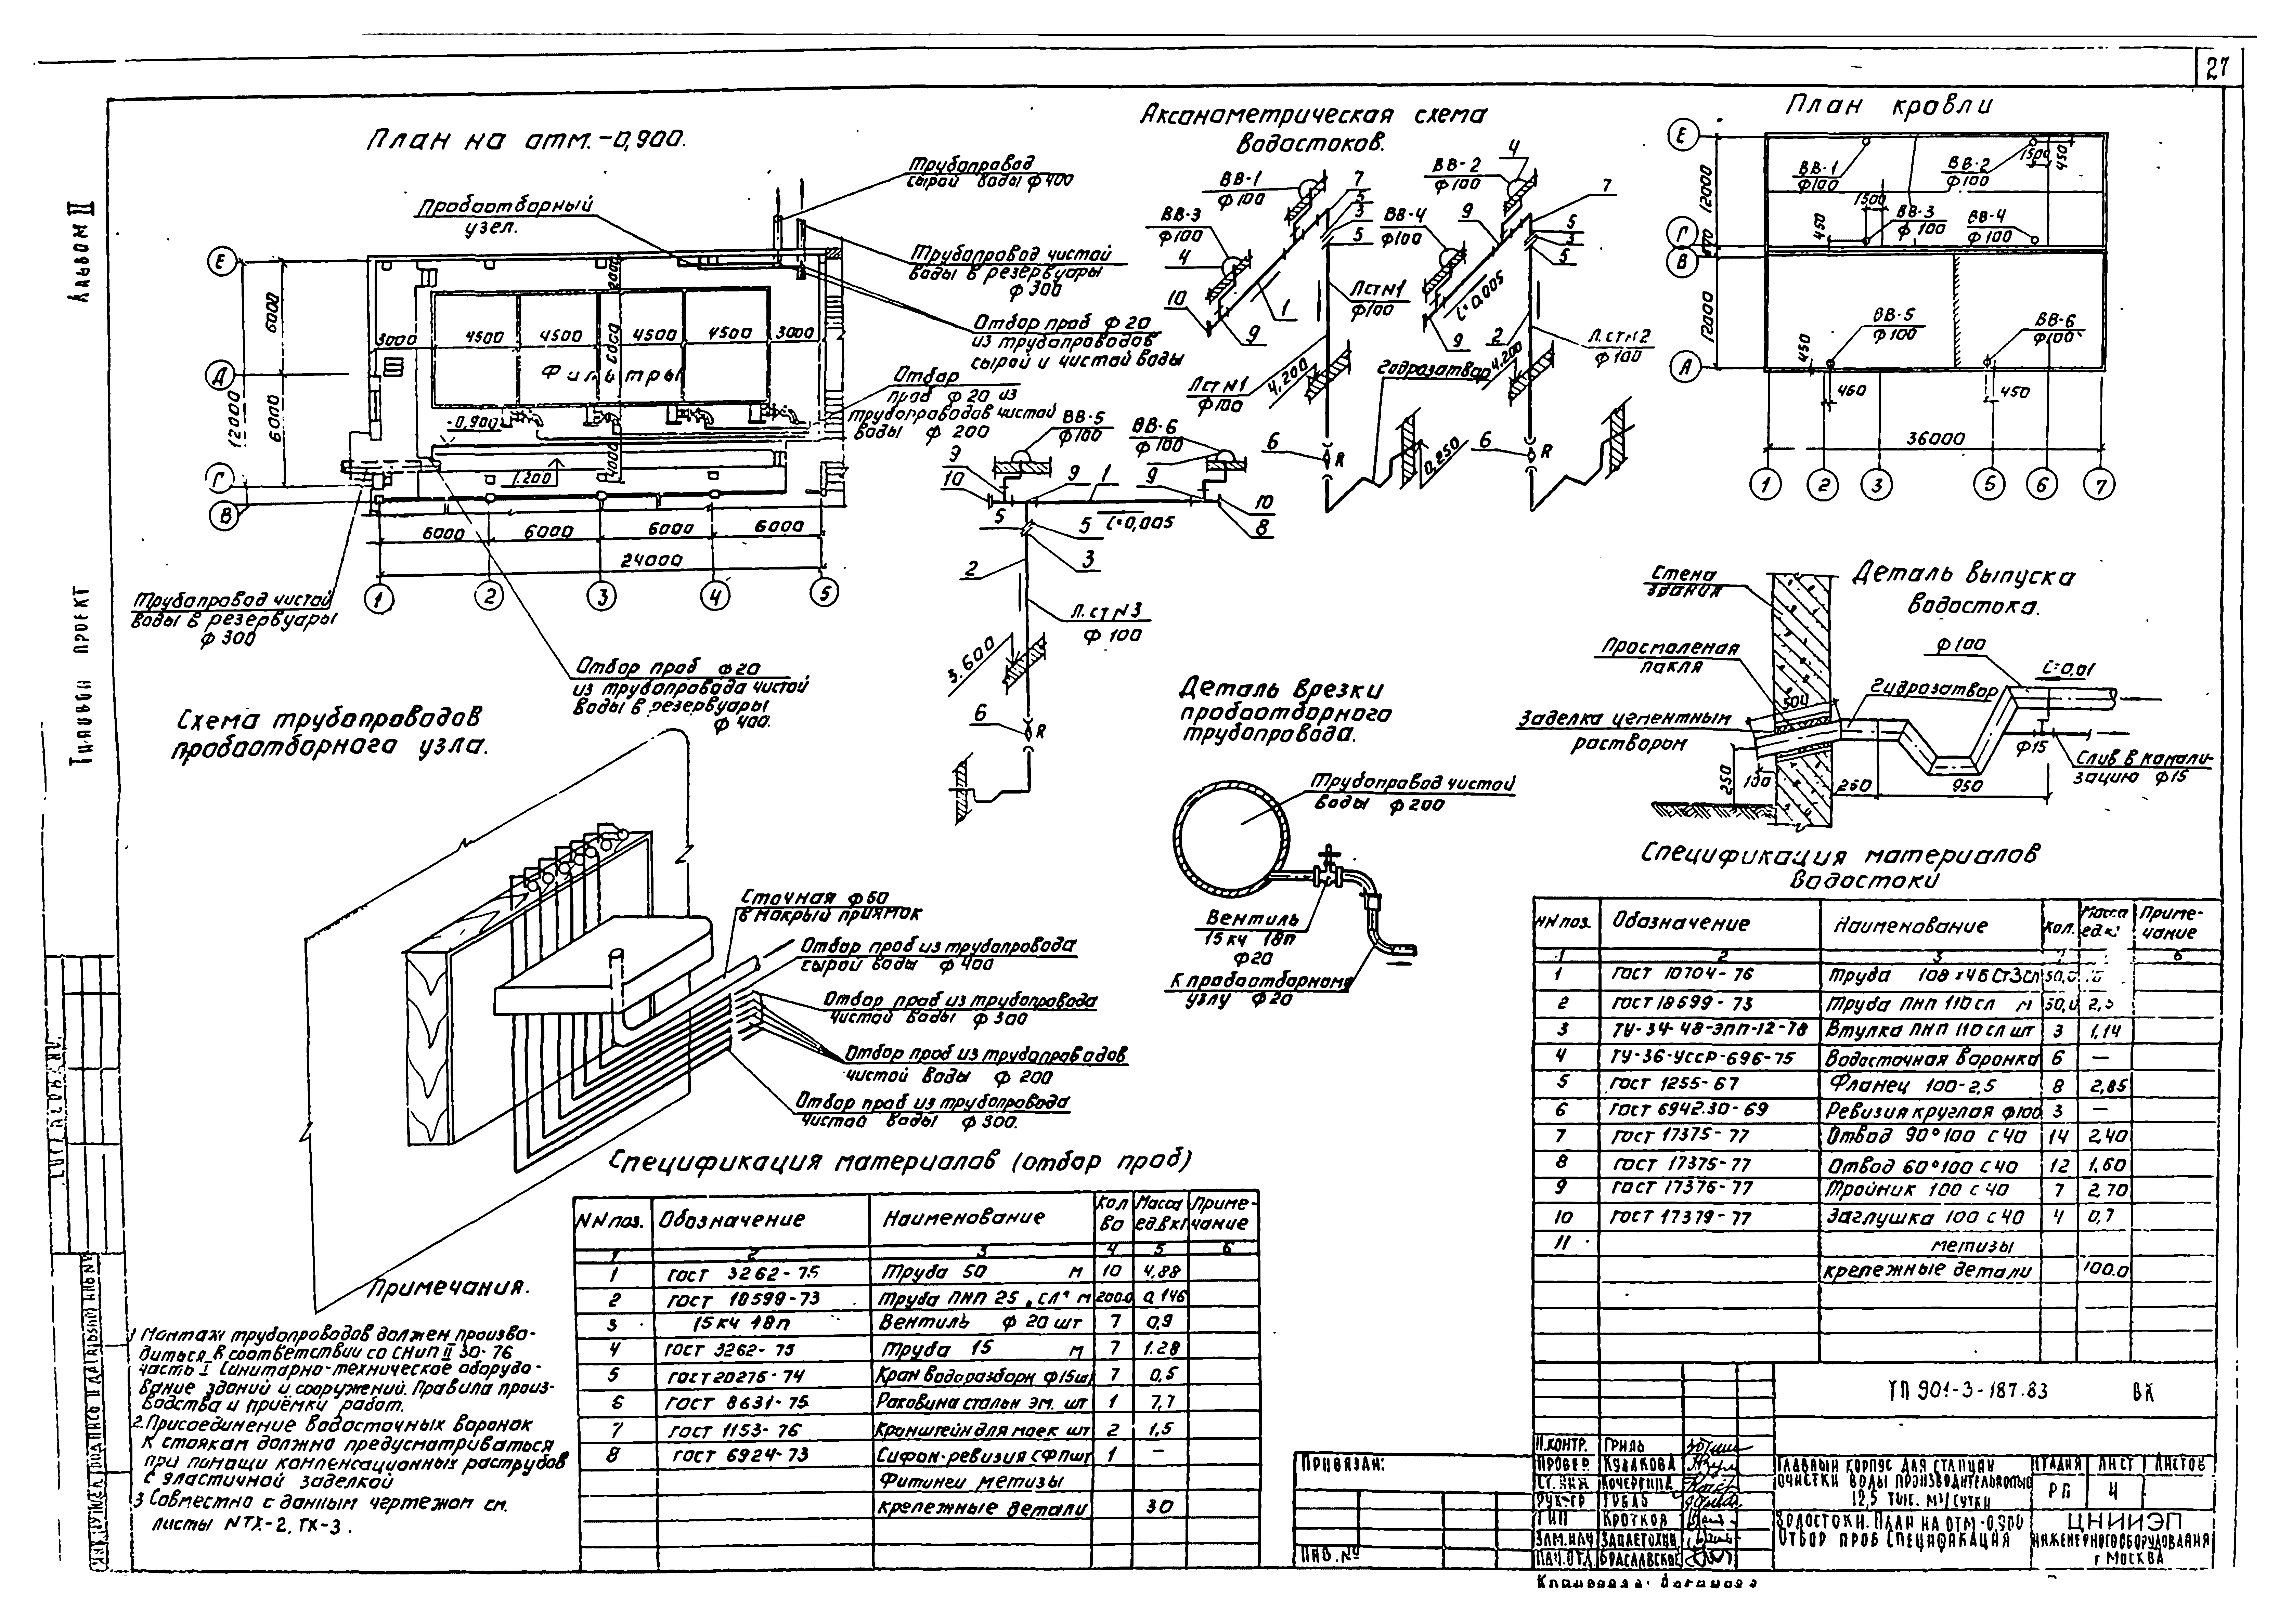 27
Альбом II
Типовой проект
План на отм. -0,900.
Пробоотборный
узел.
Трубопровод
сырой воды ф 400
Трубопровод чистой
воды в резервуары
ф 300
Отбор проб ф 20
из трубопроводов
сырой и чистой воды
Отбор
проб ф 20 из
трубопроводов чистой
воды ф 200
Е
Д
Г
В
6000
6000
12000
3000 4500 4500 4500 4500 3000
2000
6000
4000
Фильтры
-0,900
1.200
6000 6000 6000 6000
24000
1 2 3 4 5
Трубопровод чистой
воды в резервуары
ф 300
Отбор проб ф20
из трубопровода чистой
воды в резервуары
ф 400.
Аксонометрическая схема
водостоков.
ВВ-1
ф100
ВВ-3
ф100
4
10
9
1
7
5
3
5
Л ст N1
ф100
Л ст N1
ф100
4,200
6
R
ВВ-2
ф100
4
ВВ-4
ф100
9
7
5
3
5
i=0,005
9
2
Л. ст N2
ф100
Гидрозатвор
4,200
0,250
6
R
ВВ-5
ф100
ВВ-6
ф100
9
10
9
1
9
10
8
5
5
i=0,005
3
2
Л. ст N3
ф 100
3.600
6
R
План кровли
Е
Г
В
А
12000
12000
ВВ-1
ф100
ВВ-2
ф100
1500
450
1500
450
ВВ-3
ф 100
ВВ-4
ф100
ВВ-5
ф100
ВВ-6
ф100
450
460
450
36000
1 2 3 5 6 7
Деталь выпуска
водостока.
Стена
здания
Просмоленая
пакля
Заделка цементным
раствором
Гидрозатвор
ф100
i=0,01
ф15
Слив в канали-
зацию ф15
250
260
950
Схема трубопроводов
пробоотборного узла.
Сточная ф50
в мокрый приямок
Отбор проб из трубопровода
сырой воды ф 400
Отбор проб из трубопровода
чистой воды ф 300
Отбор проб из трубопроводов
чистой воды ф 200
Отбор проб из трубопровода
чистой воды ф 300.
Деталь врезки
пробоотборного
трубопровода.
Трубопровод чистой
воды ф 200
Вентиль
15 кч 18п
ф20
К пробоотборному
узлу ф20
Примечания.
1 Монтаж трубопроводов должен произво-
диться в соответствии со СНиП II 30-76
часть I Санитарно-техническое оборудо-
вание зданий и сооружений. Правила произ-
водства и приёмку работ.
2. Присоединение водосточных воронок
к стоякам должно предусматриваться
при помощи компенсационных раструбов
с эластичной заделкой
3 Совместно с данным чертежом см.
листы NТХ-2, ТХ-3.
Спецификация материалов (отбор проб)
NN поз. Обозначение Наименование Кол во Масса ед.в кг Приме-чание
1 2 3 4 5 6
1 ГОСТ 3262-75 Труба 50 м 10 4,88
2 ГОСТ 18599-73 Труба ПНП 25 "СЛ" м 200.0 0,146
3 15 кч 18п Вентиль ф 20 шт 7 0,9
4 ГОСТ 3262-75 Труба 15 м 7 1.28
5 ГОСТ 20275-74 Кран водоразборн ф15шт 7 0,5
6 ГОСТ 8631-75 Раковина стальн эм. шт 1 7,7
7 ГОСТ 1153-76 Кронштейн для моек шт 2 1,5
8 ГОСТ 6924-73 Сифон-ревизия СФП шт 1 —
Фитинги метизы
крепежные детали 30
Спецификация материалов
водостоки
NN поз. Обозначение Наименование Кол. Масса ед.кг Приме-чание
1 2 3 6
1 ГОСТ 10704-76 Труба 108х4б Ст3сп 50,0
2 ГОСТ 18699-73 Труба ПНП 110 сл м 50,0
3 ТУ-34-48-ЭПП-12-78 Втулка ПНП 110 сл шт 3 1,14
4 ТУ-36-УССР-696-75 Водосточная воронка 6 —
5 ГОСТ 1255-67 Фланец 100-2,5 8 2,85
6 ГОСТ 6942.30-69 Ревизия круглая ф100 3 —
7 ГОСТ 17375-77 Отвод 90°100 с 40 14 2,40
8 ГОСТ 17375-77 Отвод 60°100 с 40 12 1,60
9 ГОСТ 17376-77 Тройник 100 с 40 7 2,70
10 ГОСТ 17379-77 Заглушка 100 с 40 4 0,7
11 метизы
крепежные детали 100.0
ТП 901-3-187.83 ВК
Привязан:
Инв. №
Н.контр. Гриль
Провер. Кулакова
Ст. инж Кочергина
Рук-гр
ГИП Кротков
Зам.нач
Нач.отд. Браславский
Главный корпус для станции
очистки воды производительностью
12,5 тыс. м³/сутки
Стадия Лист Листов
РП 4
Водостоки. План на отм -0,900
Отбор проб Спецификация
ЦНИИЭП
инженерного оборудования
г Москва